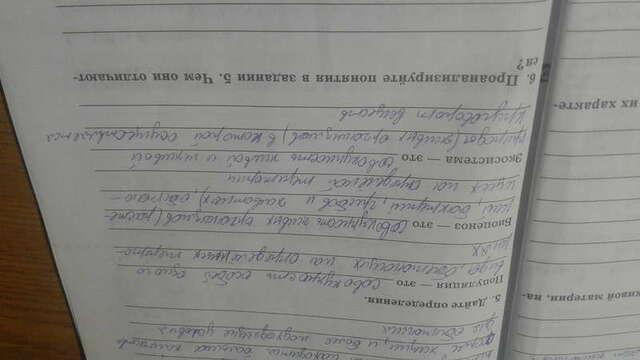 находится большое количество
форм жизни, и более подходящие условия
для обитания
5. Дайте определения.
Популяция — это совокупность особей одного
вида, обитающих на определённых террито-
живой материи, на-
Биоценоз — это совокупность живых организмов (расте-
ний, бактерий, грибов и животных), обитаю-
щих на определёной територии
Экосистема — это совокупность живой и неживой
природы (живых организмов) в которой осуществляется
круговорот веществ
их характе-
6. Проанализируйте понятия в задании 5. Чем они отличают-
ся?